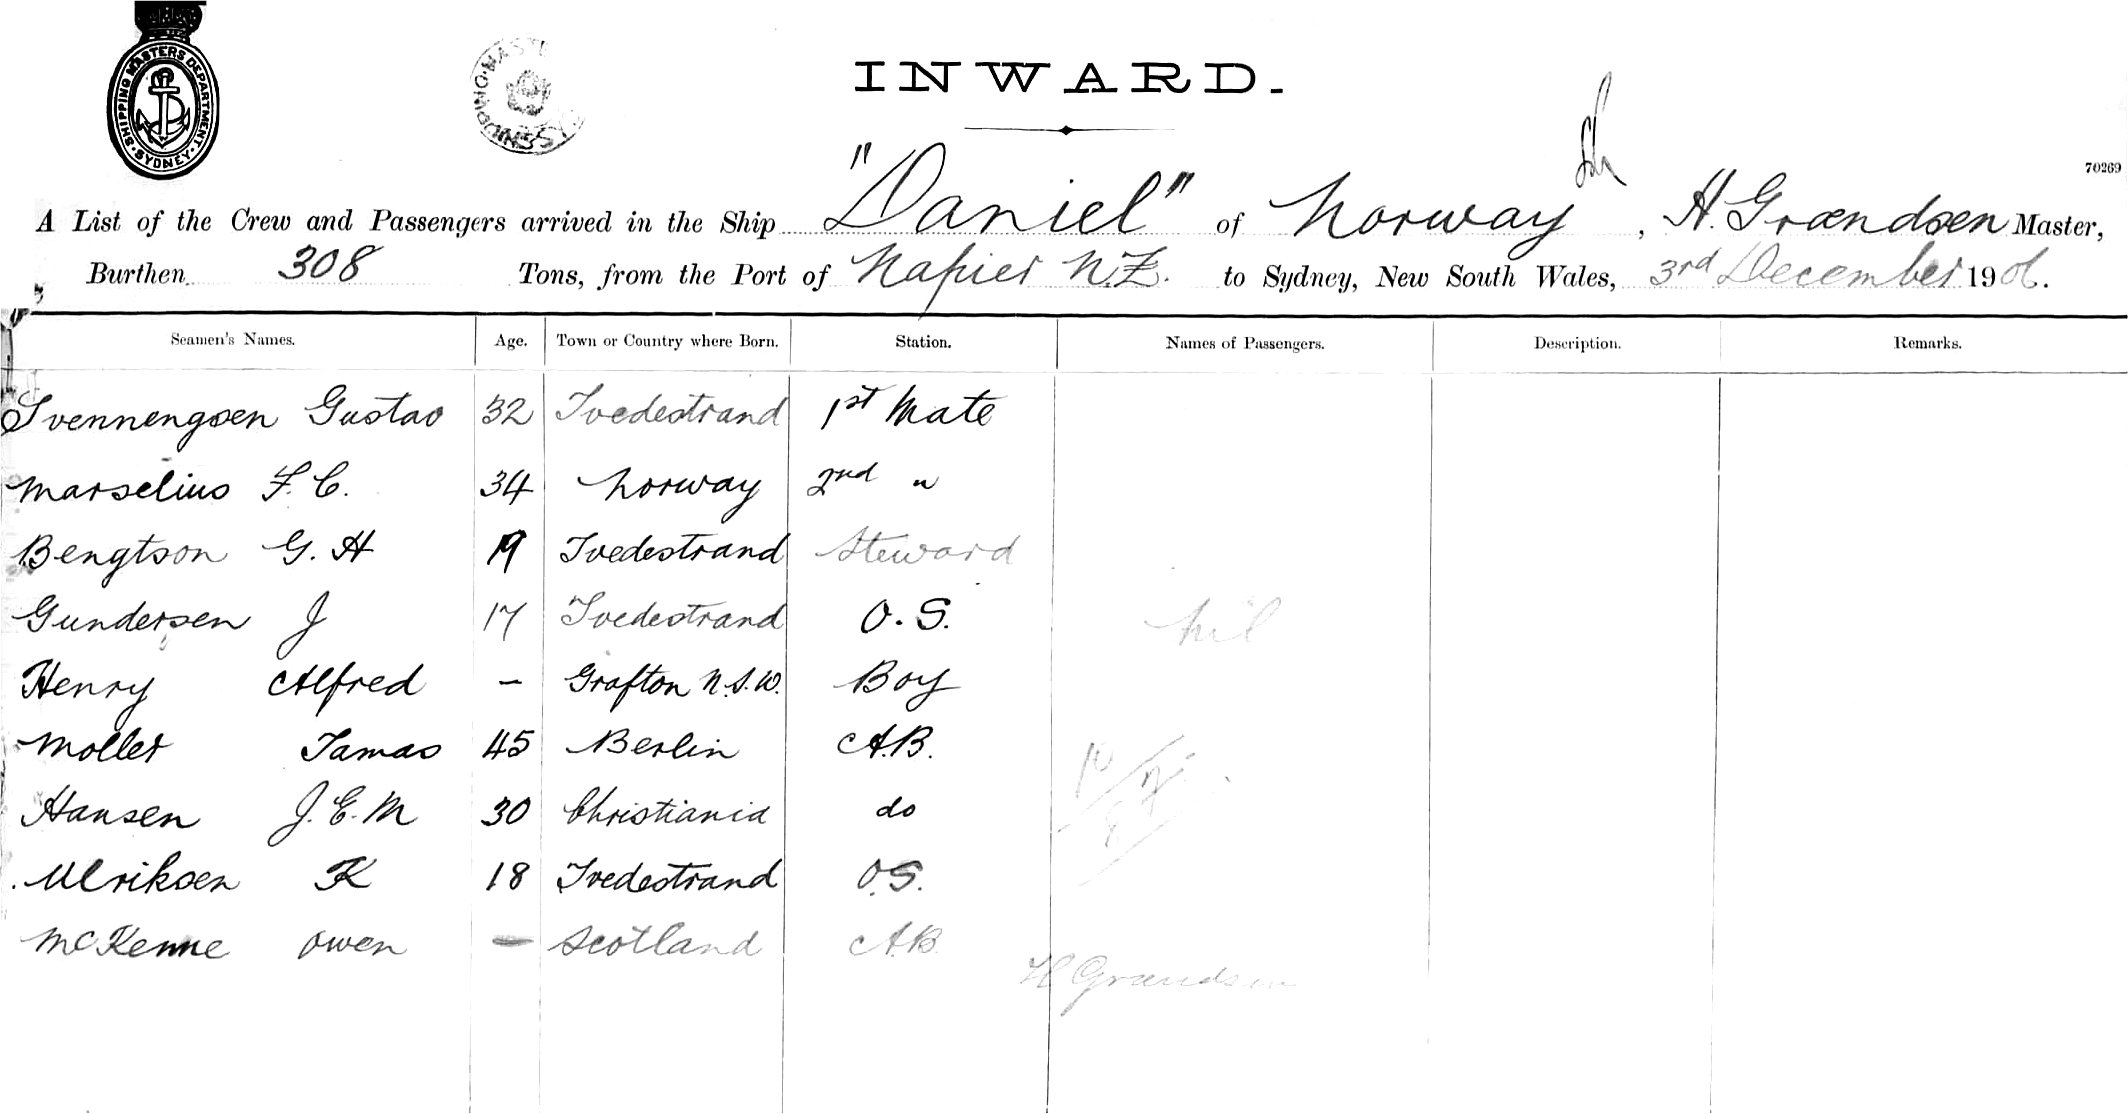 SHIPPING MASTERS DEPARTMENT. SYDNEY.
INWARD.
70269
A List of the Crew and Passengers arrived in the Ship "Daniel" of Norway, H. Grændsen Master,
Burthen 308 Tons, from the Port of Napier N.Z. to Sydney, New South Wales, 3rd December 1906.
Seamen's Names. Age. Town or Country where Born. Station. Names of Passengers. Description. Remarks.
Svennengsen Gustav 32 Tvedestrand 1st Mate
Marselius F. C. 34 Norway 2nd "
Bengtson G. H 19 Tvedestrand Steward
Gundersen J 17 Tvedestrand O. S. nil
Henry Alfred – Grafton N.S.W. Boy
Moller Tamas 45 Berlin A.B.
Hansen J. E. M 30 Christiania do
Ulriksen K 18 Tvedestrand O.S.
McKenne Owen – Scotland A.B.
H Grændsen